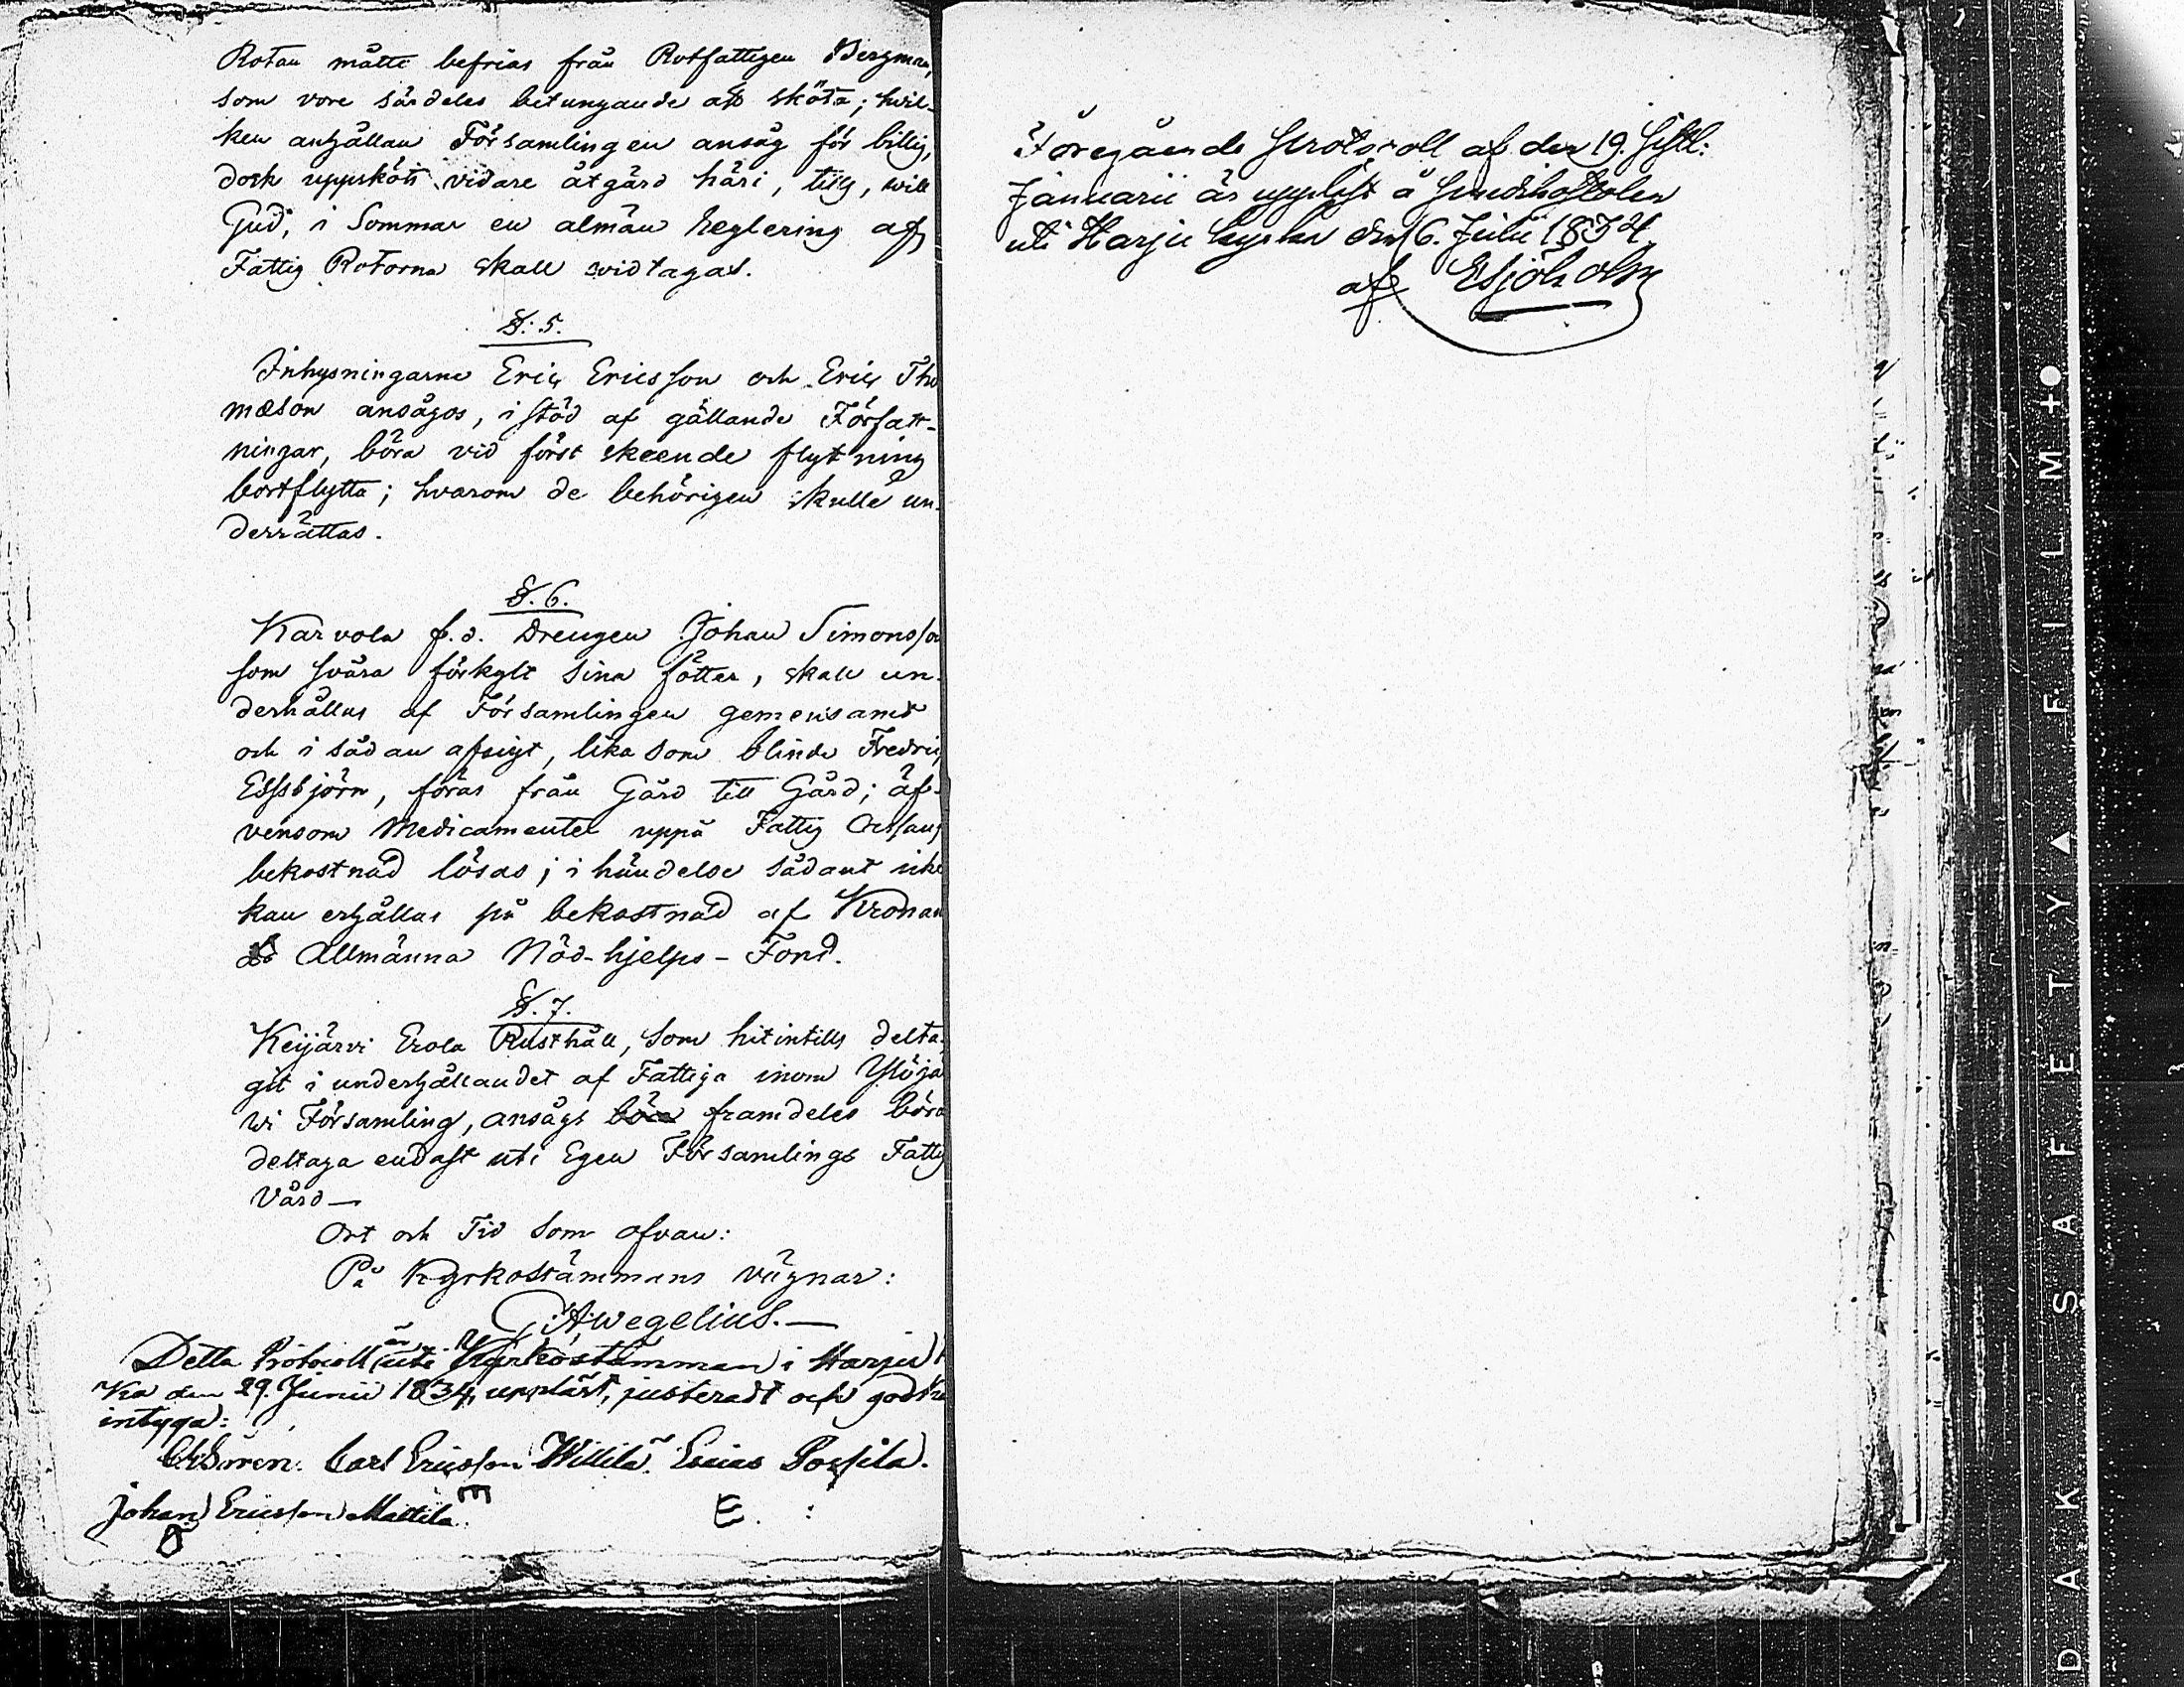 Rotan måtte befrias från Rotfattigen Bergman,
som vore särdeles betungande att sköta; hvil-
ken anhållan Församlingen ansåg för billig,
dock uppsköts vidare åtgärd häri, tills, will
Gud, i Sommar en almän Reglering af
Fattig Rotorna skall vidtagas.
§. 5.
Inhysningarne Eric Ericsson och Eric Tho
mæson ansågos, i stöd af gällande Författ-
ningar, böra vid först skeende flytning
bortflytta; hvarom de behörigen skulle un-
derrättas.
§. 6.
Karvola f.d. Drengen Johan Simonsson
som svåra förkylt sina fötter, skall un-
derhållas af Församlingen gemensamt
och i sådan afsigt, lika som blinda Fredric
Essbjörn, föras från Gård till Gård; äf-
vensom Medicamenter uppå Fattig Cassans
bekostnad lösas; i händelse sådant icke
kan erhållas på bekostnad af Kronan
Allmänna Nöd-hjelps-Fond.
§. 7.
Keijärvi Erola Rusthåll, som hitintills delta-
git i underhållandet af Fattiga inom Ylöjä
wi Församling, ansågs böra framdeles böra
deltaga endast uti Egen Församlings Fattig
Vård—
Ort och Tid som ofvan:
På Kyrkostämmans vägnar:
Wegelius.—
Detta Protocoll är uti Kyrkostämman i Harju k
ka den 29. Junii 1834, uppläst, justeradt och godkä
intyga:
Carl Ericsson Willilä. Esaias Possila.
Johan Ericsson Mattila. m E. :
Föregående Protocoll af den 19. sistl:
Januarii är uppläst å Predikostolen
uti Harju kyrka den 6. Julii 1834
af Esjöholm
DAK SAFETY▲ FILM +●